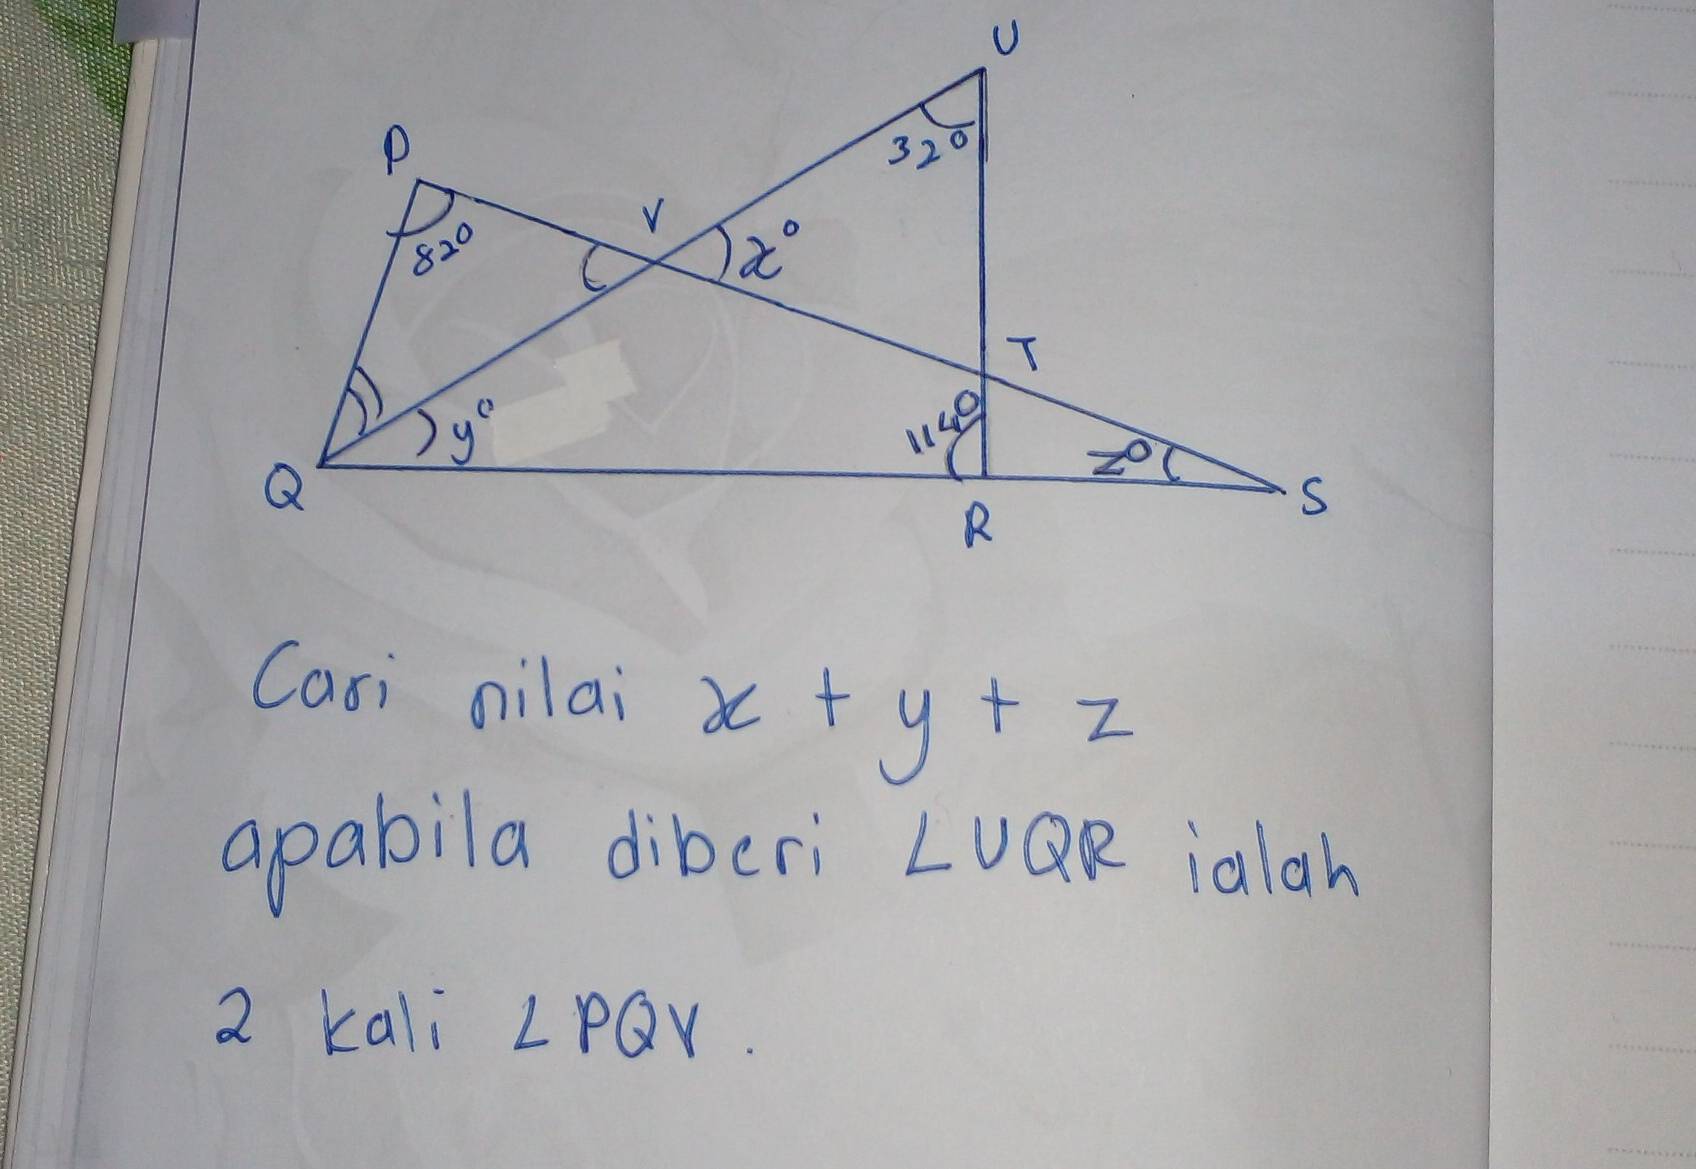 U
P
32°
V
x°
82°
T
y°
114°
z°
Q
S
R
Cari nilai x + y + z
apabila diberi ∠UQR ialah
2 kali ∠PQV.